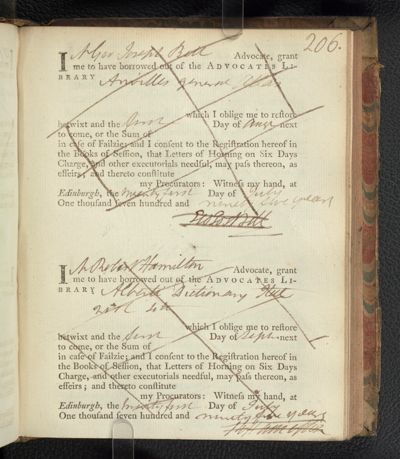 206.
I Mr Geo Joseph Bell Advocate, grant
me to have borrowed out of the ADVOCATES LI-
BRARY general
which I oblige me to reſtore
betwixt and the first Day of next
to come, or the Sum of
in caſe of Failzie; and I conſent to the Regiſtration hereof in
the Books of Seſſion, that Letters of Horning on Six Days
Charge, and other executorials needful, may paſs thereon, as
effeirs; and thereto conſtitute
my Procurators: Witneſs my hand, at
Edinburgh, the twenty first Day of July
One thouſand ſeven hundred and ninety five years
Geo Jos Bell
I Mr Robert Hamilton Advocate, grant
me to have borrowed out of the ADVOCATES LI-
BRARY Dictionary
which I oblige me to reſtore
betwixt and the first Day of Septr next
to come, or the Sum of
in caſe of Failzie; and I conſent to the Regiſtration hereof in
the Books of Seſſion, that Letters of Horning on Six Days
Charge, and other executorials needful, may paſs thereon, as
effeirs; and thereto conſtitute
my Procurators: Witneſs my hand, at
Edinburgh, the twenty first Day of July
One thouſand ſeven hundred and ninety five years